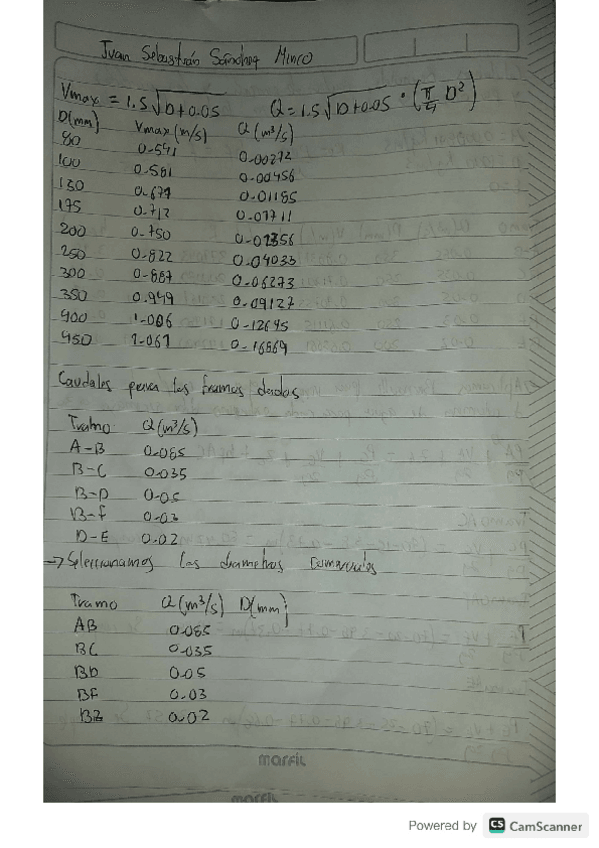 Juan Sebastián Sánchez Minco
Vmax = 1.5√D+0.05 Q = 1.5√D+0.05 · (π/4 D²)
D(mm) Vmax(m/s) Q(m³/s)
80 0.541 0.00272
100 0.581 0.00456
150 0.671 0.01185
175 0.712 0.01711
200 0.750 0.02356
250 0.822 0.04033
300 0.887 0.06273
350 0.949 0.09127
400 1.006 0.12645
450 1.061 0.16869
Caudales para los tramos dados
Tramo Q(m³/s)
A-B 0.085
B-C 0.035
B-D 0.05
B-F 0.03
D-E 0.02
→ Seleccionamos los diametros comerciales
Tramo Q(m³/s) D(mm)
AB 0.085
BC 0.035
BD 0.05
BF 0.03
BE 0.02
marfil
marfil
Powered by CS CamScanner